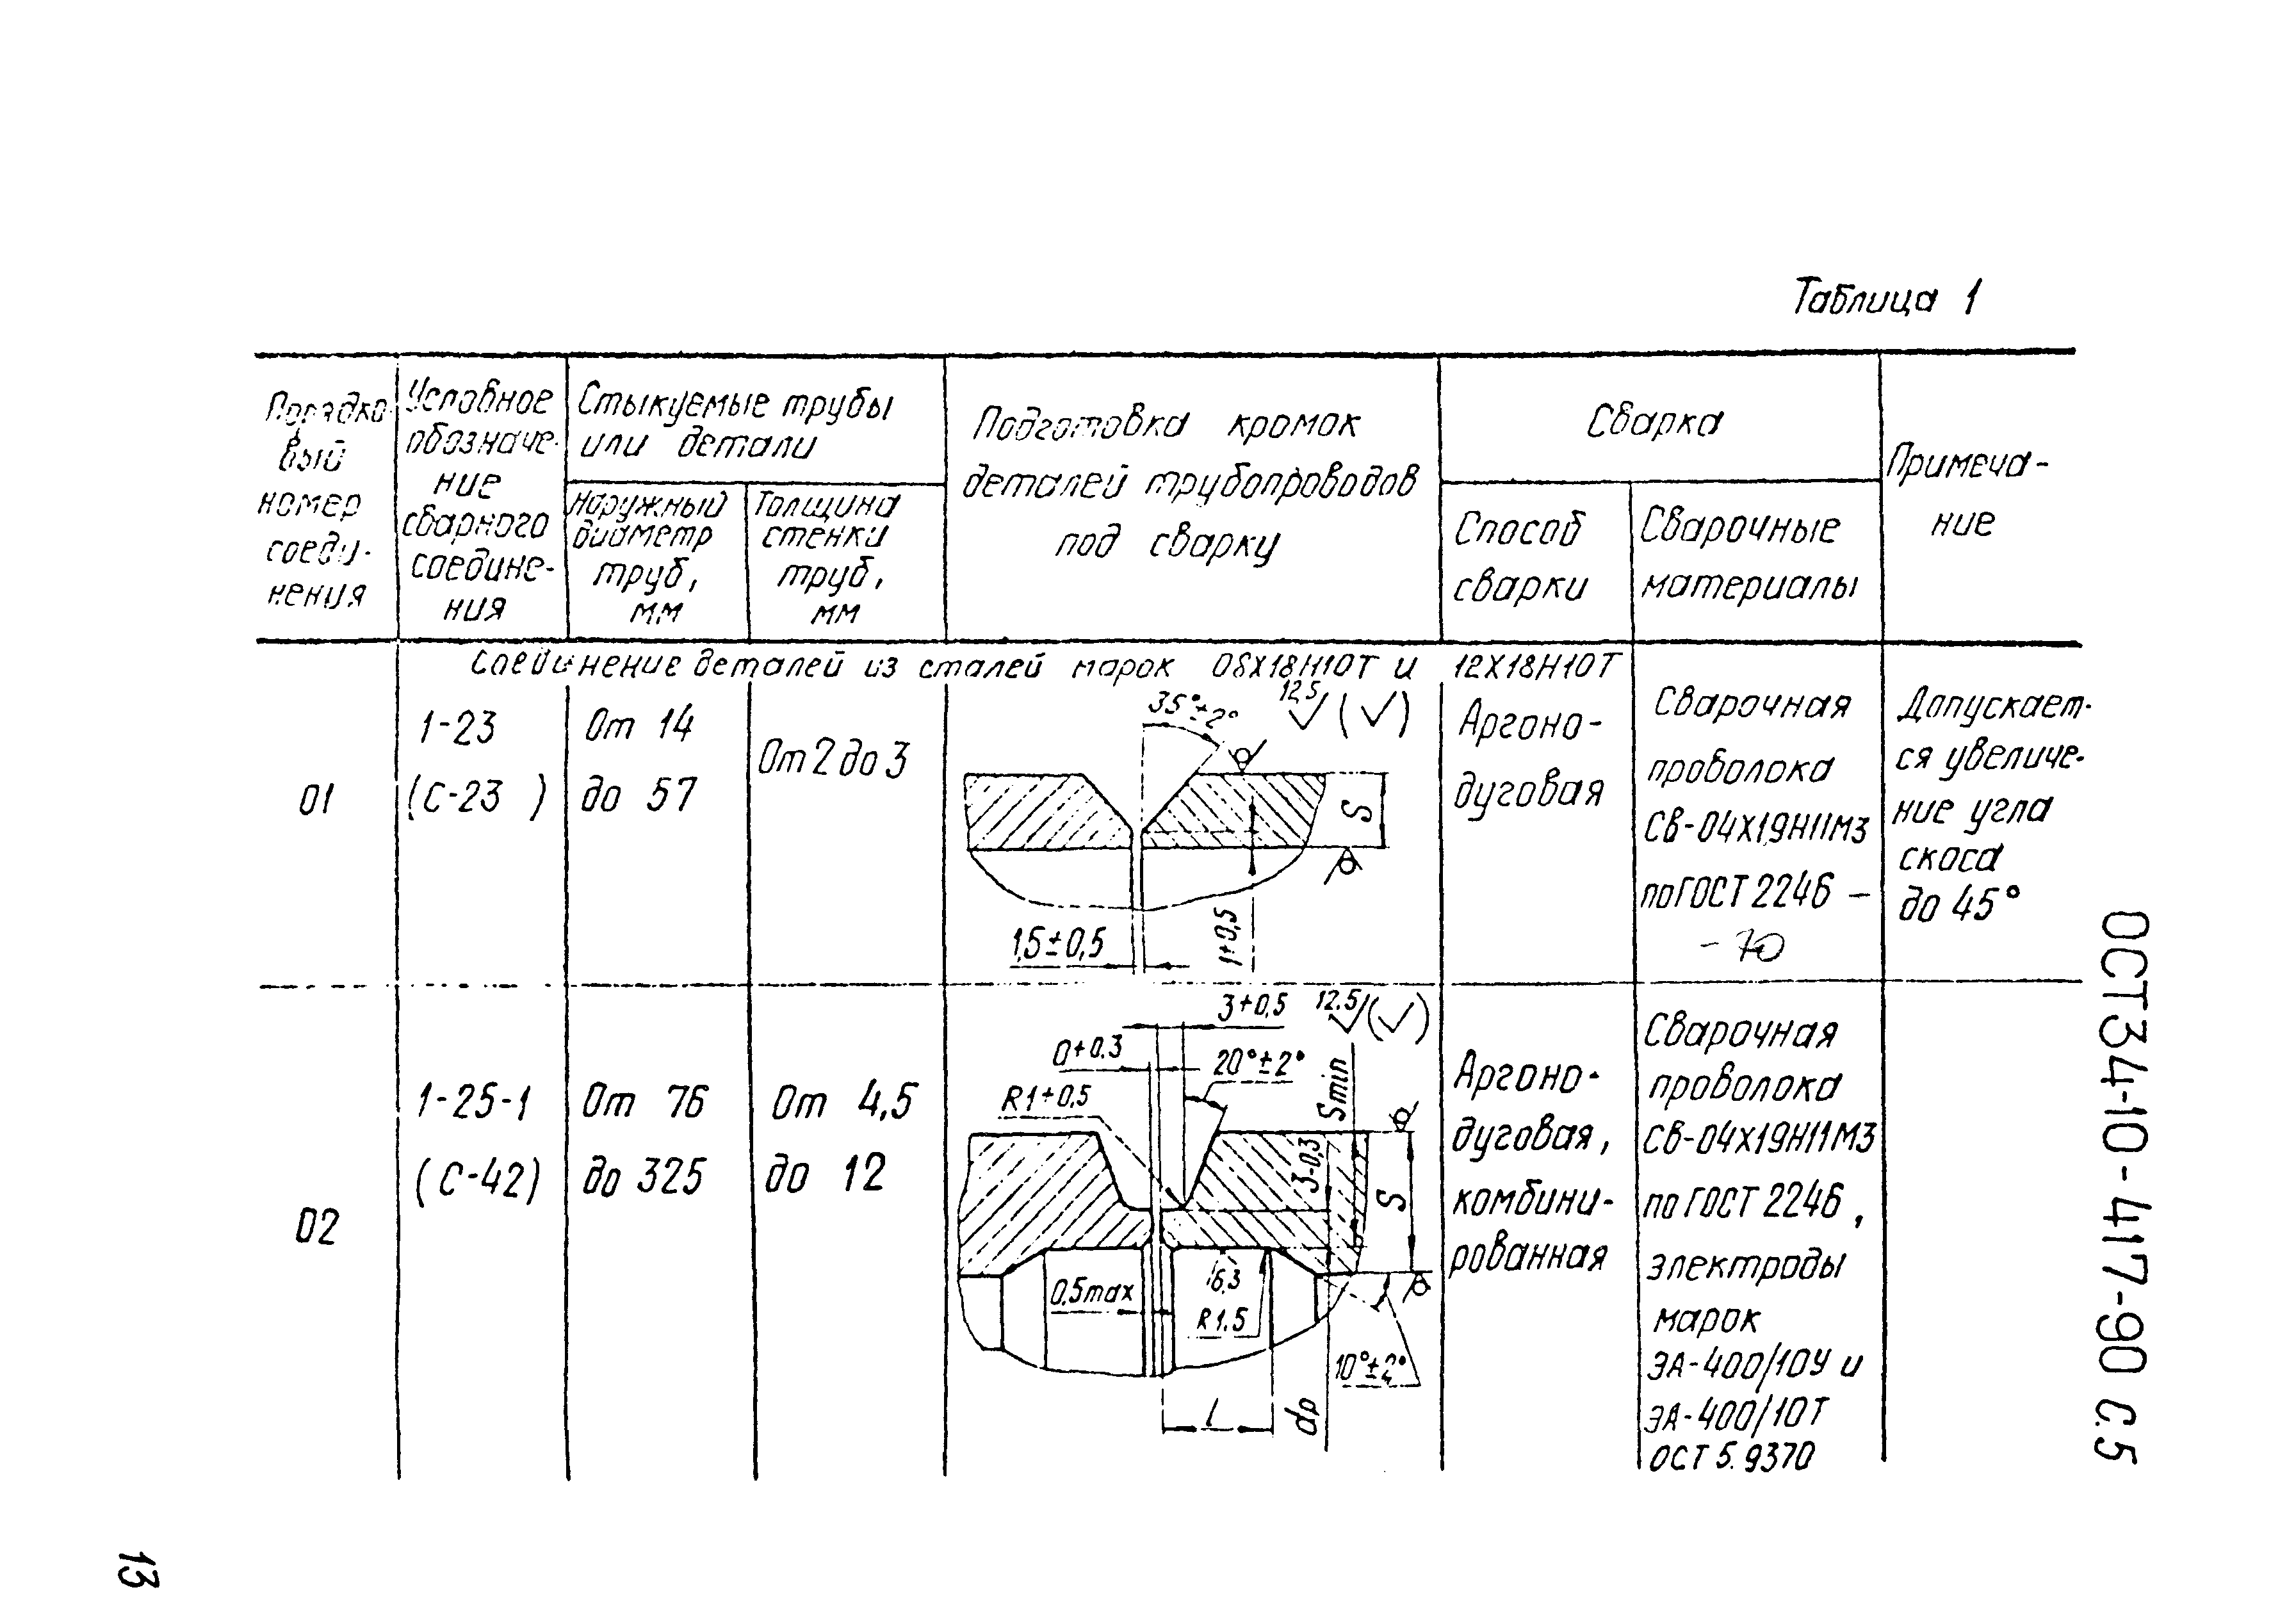 Таблица 1
Порядко-
вый
номер
соеди-
нения
Условное
обозначе-
ние
сварного
соедине-
ния
Стыкуемые трубы
или детали
Наружный
диаметр
труб,
мм
Толщина
стенки
труб,
мм
Подготовка кромок
деталей трубопроводов
под сварку
Сварка
Способ
сварки
Сварочные
материалы
Примеча-
ние
Соединение деталей из сталей марок 08Х18Н10Т и 12Х18Н10Т
01
1-23
(С-23 )
От 14
до 57
От 2 до 3
35°±2°
12,5 (✓)
S
1,5±0,5
1+0,5
Аргоно-
дуговая
Сварочная
проволока
СВ-04Х19Н11М3
по ГОСТ 2246 -
- 70
Допускает-
ся увеличе-
ние угла
скоса
до 45°
02
1-25-1
(С-42)
От 76
до 325
От 4,5
до 12
3+0,5
12.5 (✓)
0+0.3
20°±2°
R1+0,5
Smin
3-0,3
S
0,5max
6,3
R1.5
10°±2°
l
dр
Аргоно-
дуговая,
комбини-
рованная
Сварочная
проволока
СВ-04Х19Н11М3
по ГОСТ 2246,
электроды
марок
ЭА-400/10У и
ЭА-400/10Т
ОСТ 5.9370
ОСТ 34-10-417-90 С.5
13